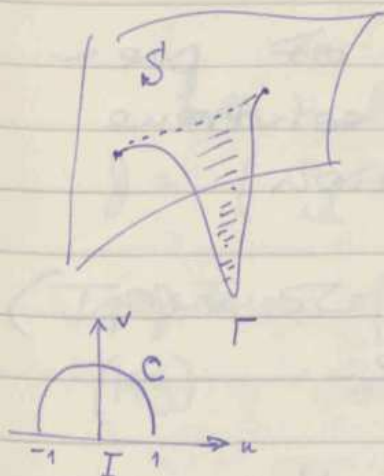 S
Γ
v
C
-1 I 1 u